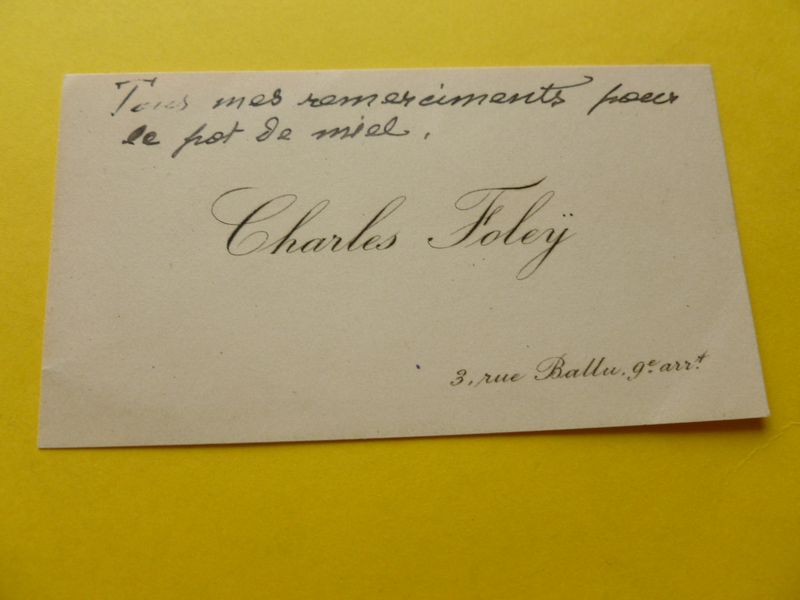 Tous mes remerciments pour
le pot de miel.
Charles Foleÿ
3, rue Ballu. 9e. arrt.